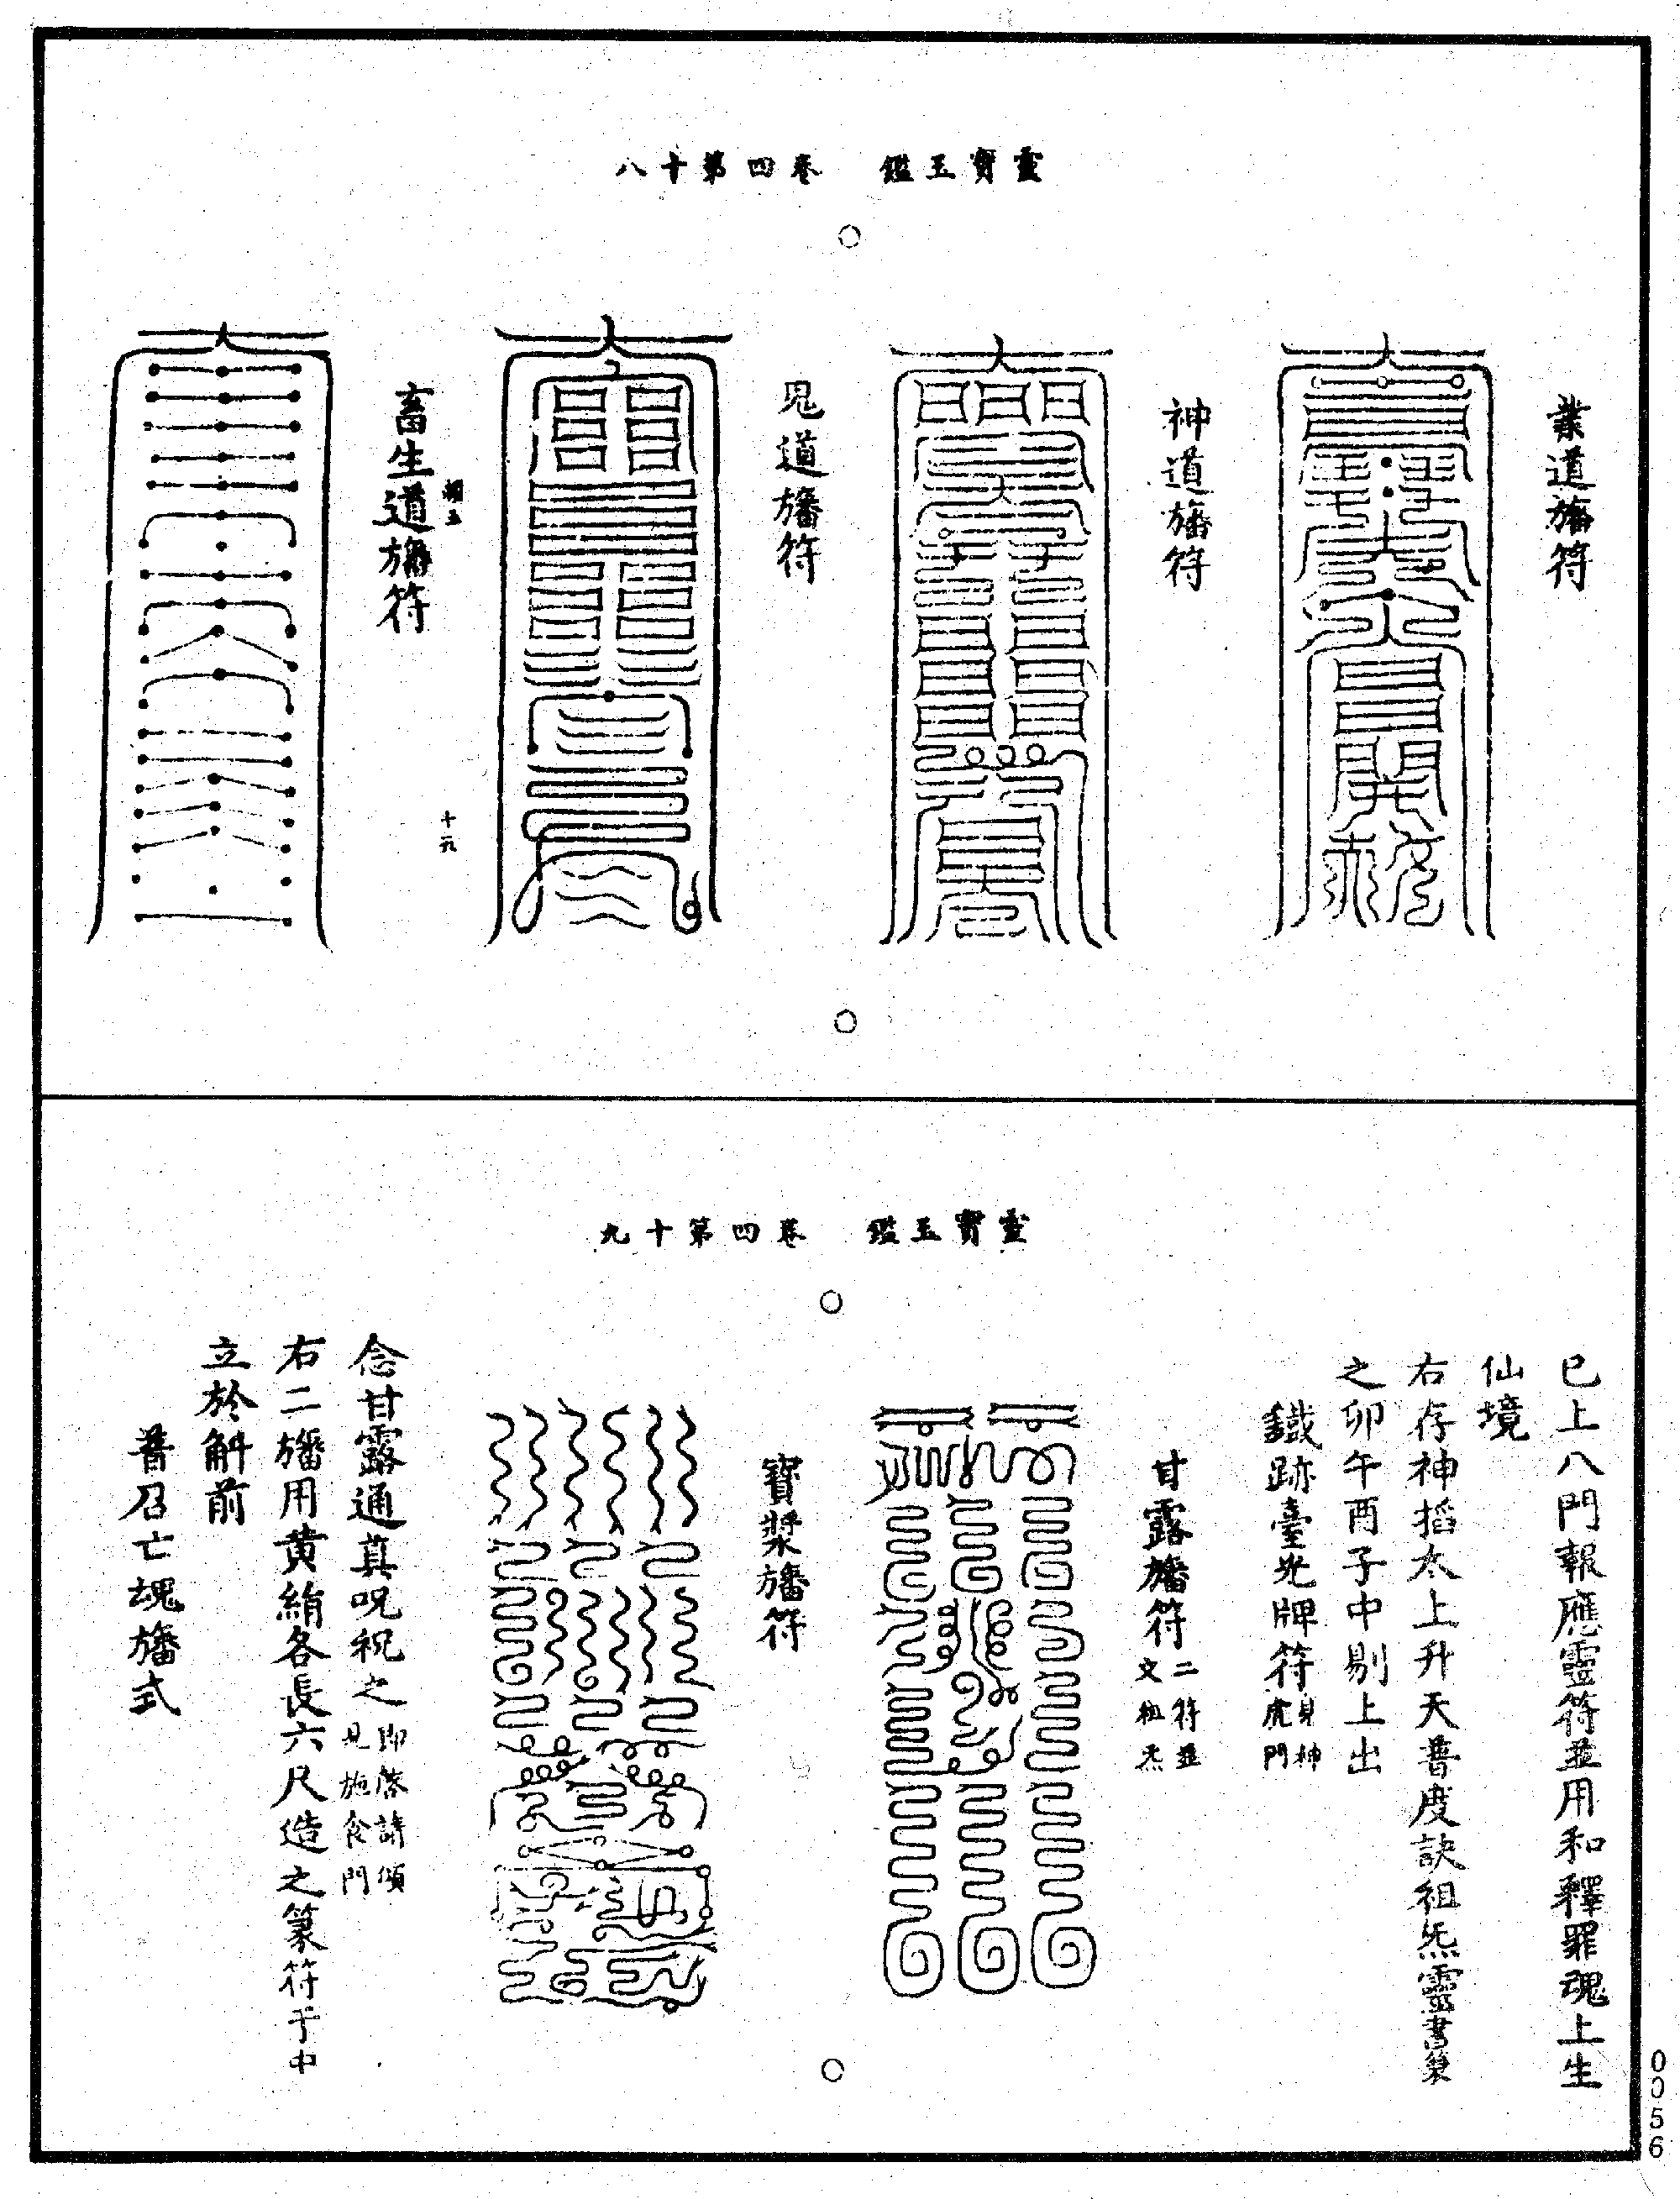 靈寶玉鑑　卷四第十八
業道旛符
神道旛符
鬼道旛符
畜生道旛符
靈寶玉鑑　卷四第十九
已上八門報應靈符並用和釋罪魂上生
仙境
右存神掐太上升天普度訣祖炁靈書篆
之卯午酉子中剔上出
鐵跡臺光牌符
甘露旛符二符並
寶漿旛符
念甘露通真呪祝之即啓請頌
見施食門
右二旛用黃絹各長六尺造之篆符于中
立於斛前
普召亡魂旛式
0056